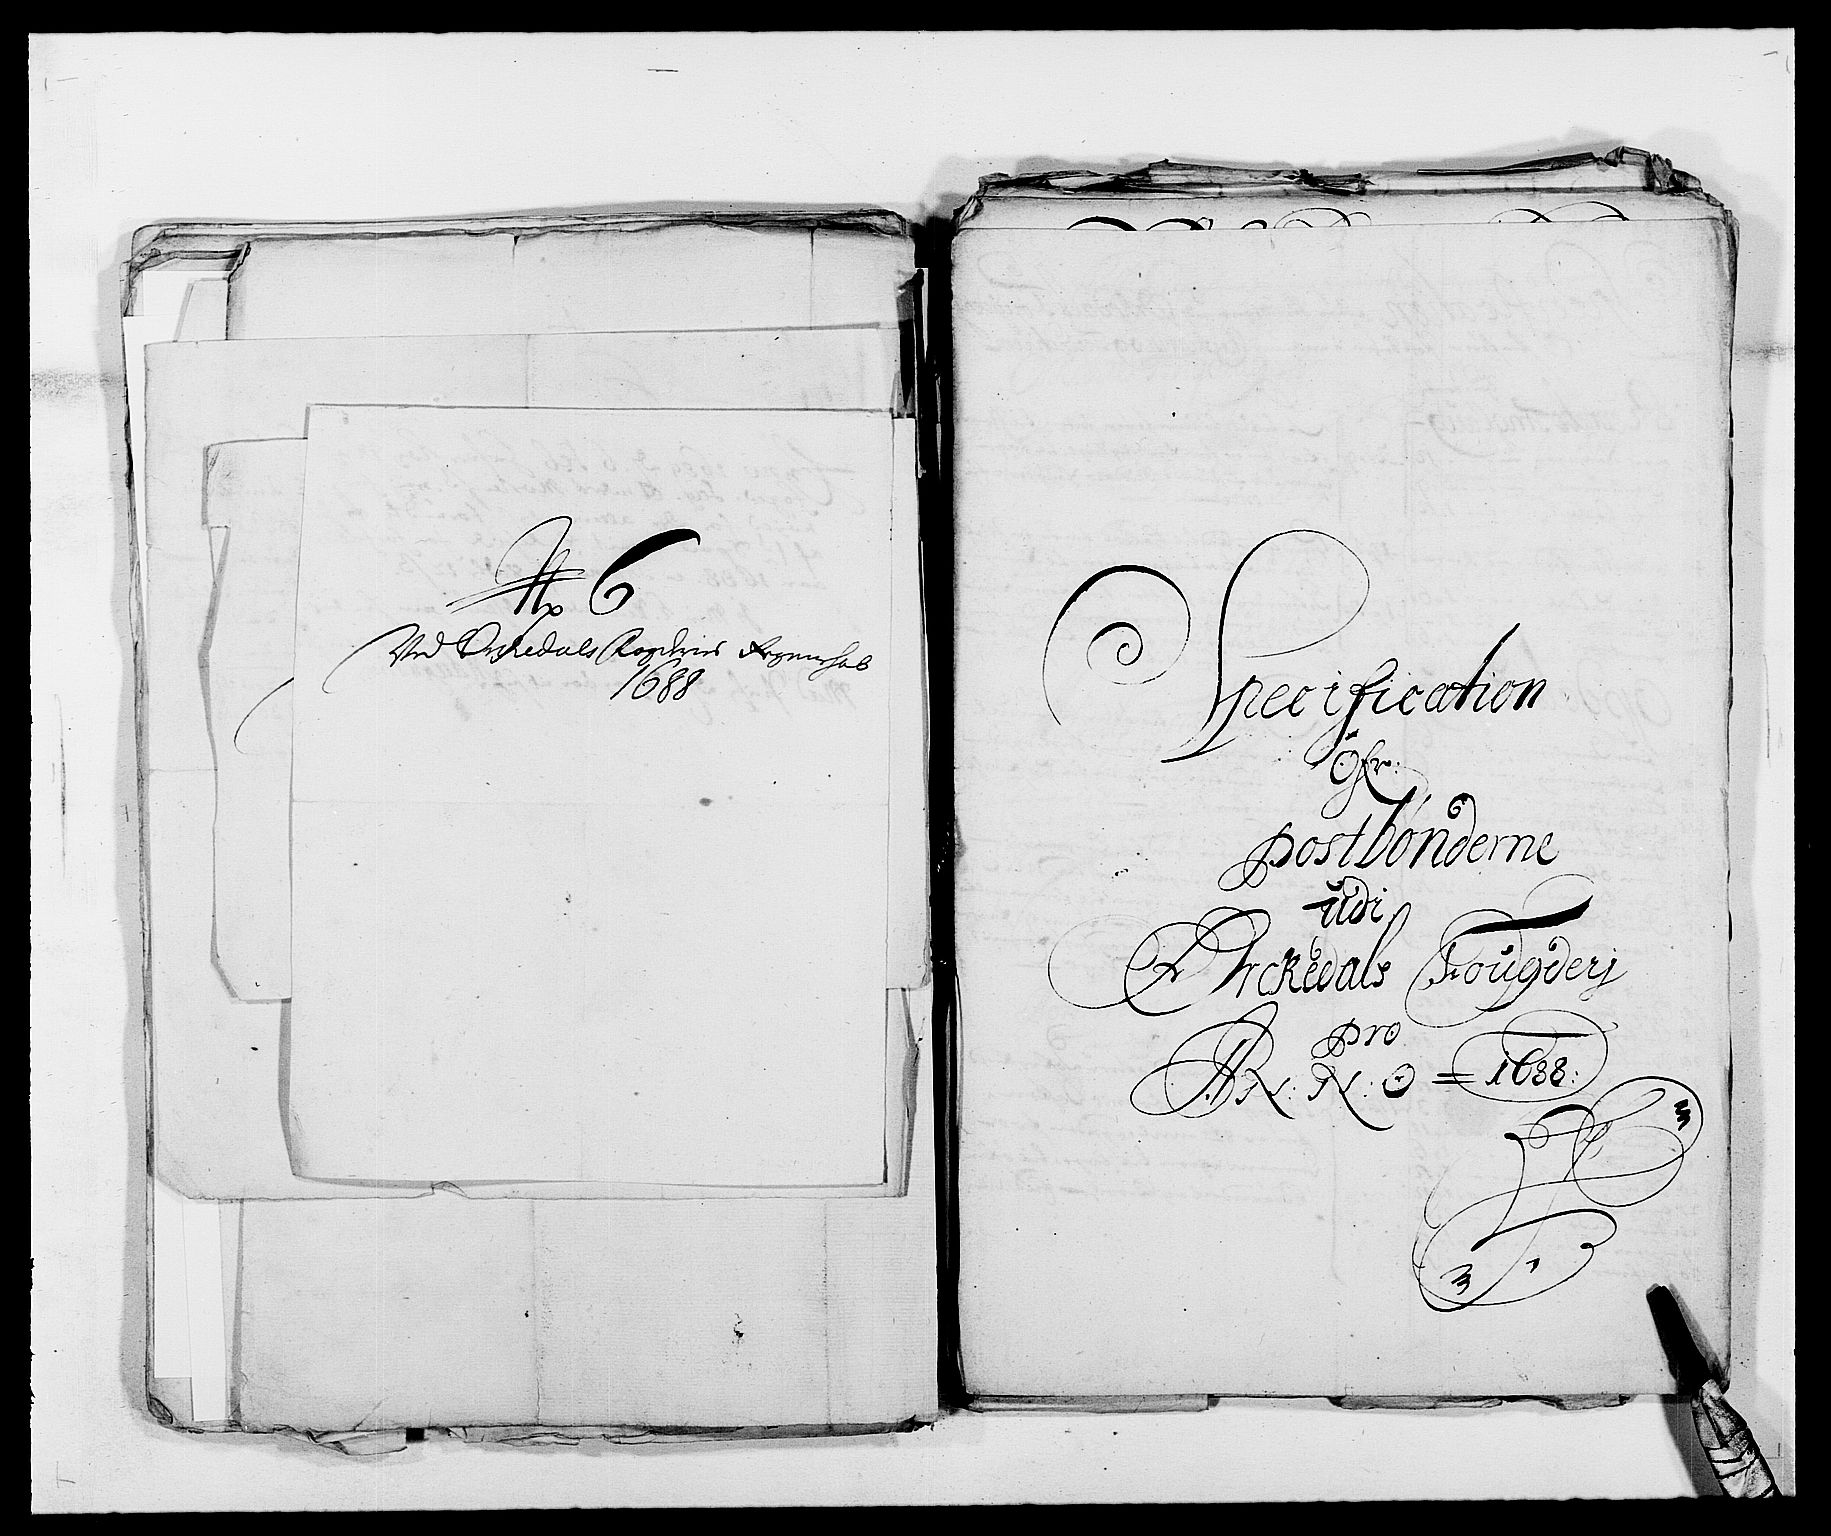 No 6
Ved Orckedals Fogderies Regenschab
1688
Specification
Ofr:
postbönderne
udi
Orckedals Fougderj
pro
AN: N: O = 1688: